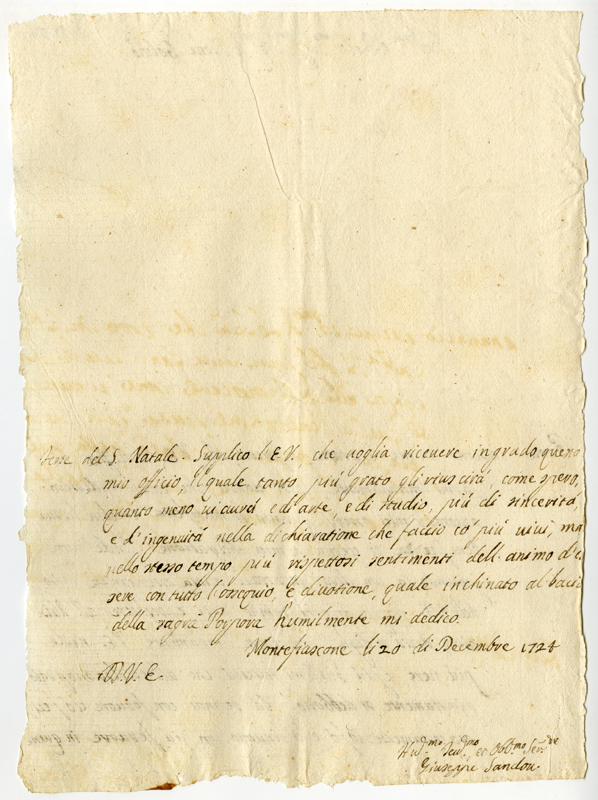 feste del S. Natale. Supplico l'E.V. che voglia ricevere in grado questo
mio officio, il quale tanto più grato gli riuscirà, come spero,
quanto meno vi curai e di arte, e di studio, più di sincerità
e d'ingenuità nella dichiaratione che faccio co' più vivi, ma
nello stesso tempo più rispettosi sentimenti dell'animo d'es
sere con tutto l'ossequio, e divotione, quale inchinato al bacio
della sagra Porpora humilmente mi dedico.
Montefiascone li 20 di Decembre 1724
D. V. E.
et Obb.mo Ser.re
Giuseppe